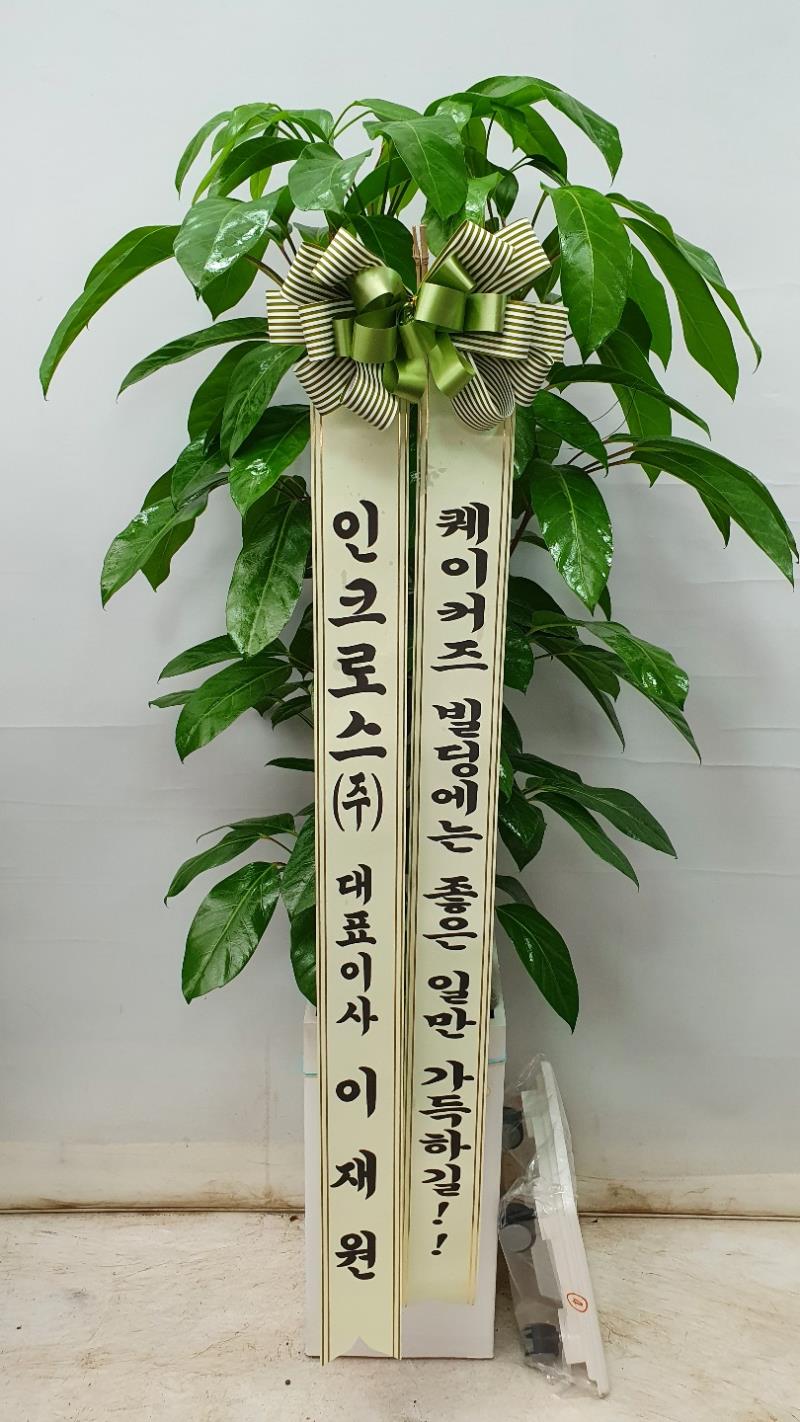 인크로스(주) 대표이사 이재원
퀘이커즈 빌딩에는 좋은 일만 가득하길!!